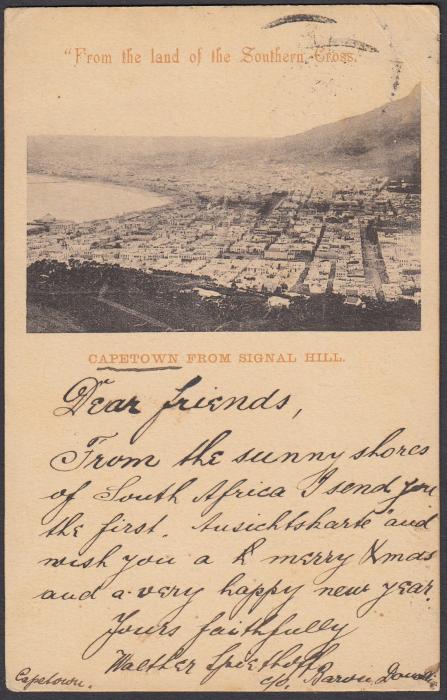 "From the land of the Southern Cross.
CAPETOWN FROM SIGNAL HILL.
Dear friends,
From the sunny shores
of South Africa I send you
the first "Ansichtskarte" and
wish you a merry Xmas
and a very happy new year.
Yours faithfully
Walther
c/o Baron
Capetown.